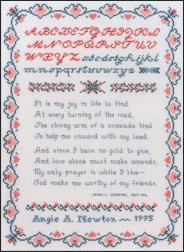 ABCDEFGHIJKL
MNOPQRSTUV
WXYZ abcdefghijkl
mnopqrstuvwxyz
It is my joy in life to find
At every turning of the road,
The strong arm of a comrade kind
To help me onward with my load.
And since I have no gold to give,
And love alone must make amends,
My only prayer is while I live—
God make me worthy of my friends.
Angie A. Newton — 1995